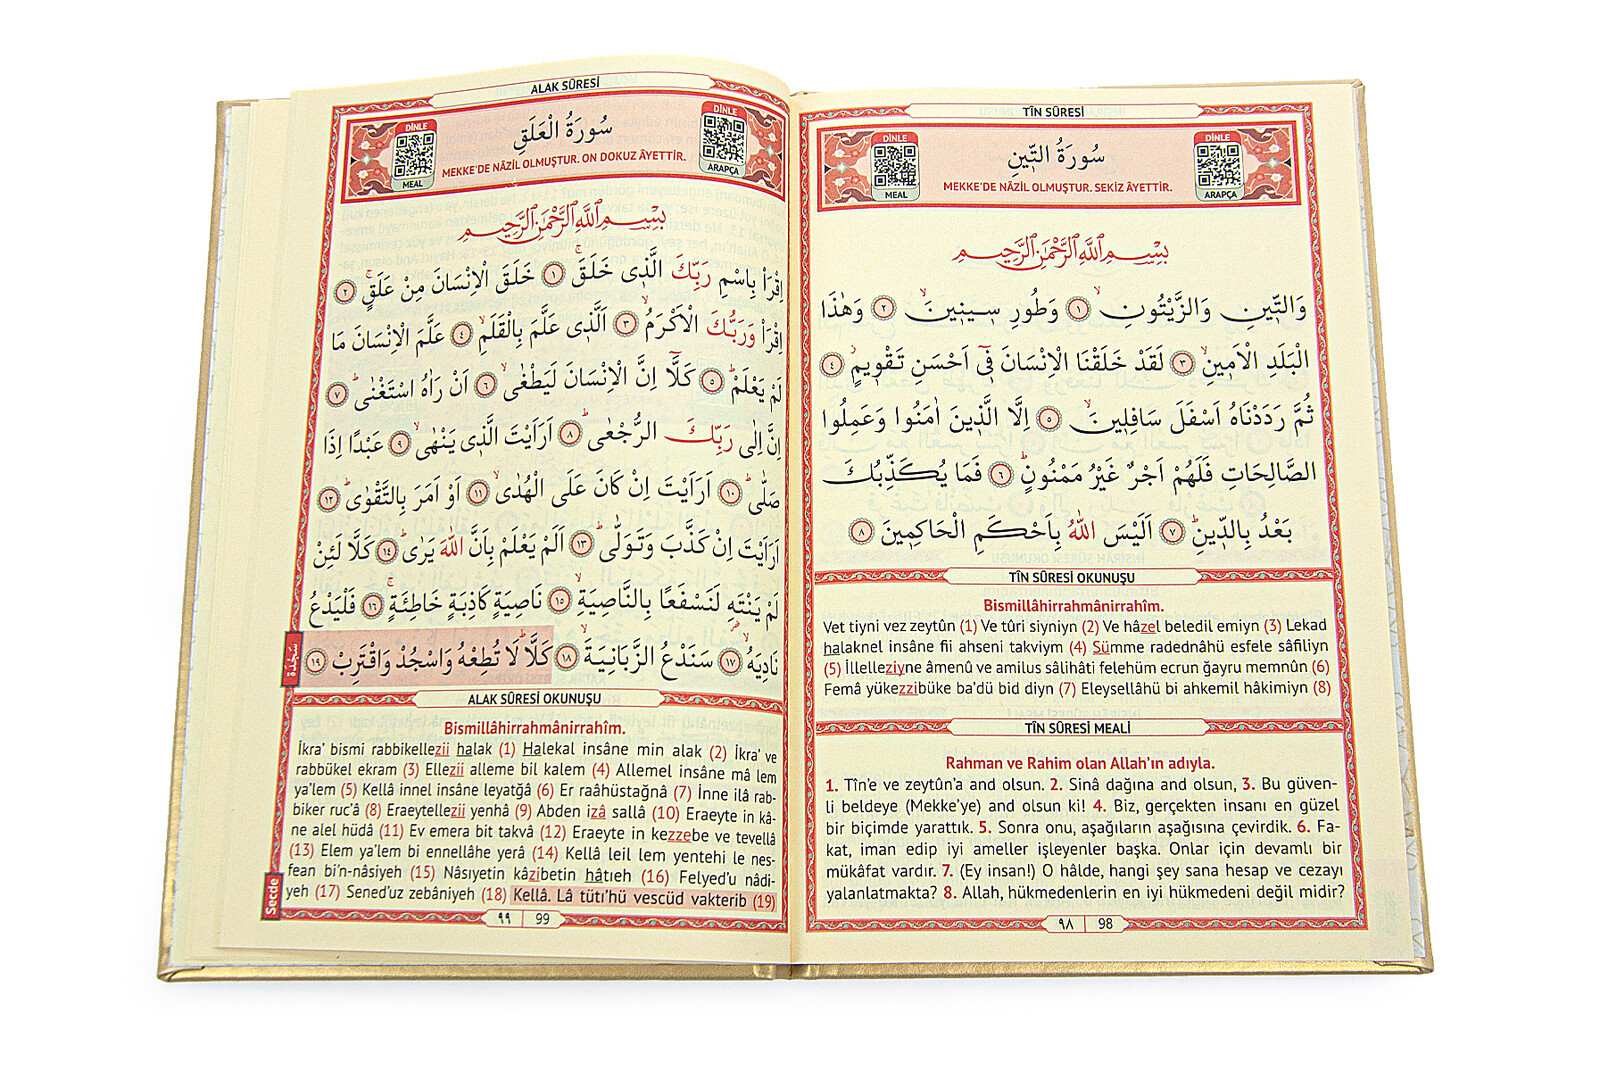 TÎN SÛRESİ
DİNLE
MEAL
سُورَةُ التّ۪ينِ
MEKKE'DE NÂZİL OLMUŞTUR. SEKİZ ÂYETTİR.
DİNLE
ARAPÇA
بِسْمِ اللّٰهِ الرَّحْمٰنِ الرَّح۪يمِ
وَالتّ۪ينِ وَالزَّيْتُونِۙ ﴿١﴾ وَطُورِ س۪ين۪ينَۙ ﴿٢﴾ وَهٰذَا
الْبَلَدِ الْاَم۪ينِۙ ﴿٣﴾ لَقَدْ خَلَقْنَا الْاِنْسَانَ ف۪ٓي اَحْسَنِ تَقْو۪يمٍۘ ﴿٤﴾
ثُمَّ رَدَدْنَاهُ اَسْفَلَ سَافِل۪ينَۙ ﴿٥﴾ اِلَّا الَّذ۪ينَ اٰمَنُوا وَعَمِلُوا
الصَّالِحَاتِ فَلَهُمْ اَجْرٌ غَيْرُ مَمْنُونٍۜ ﴿٦﴾ فَمَا يُكَذِّبُكَ
بَعْدُ بِالدّ۪ينِۜ ﴿٧﴾ اَلَيْسَ اللّٰهُ بِاَحْكَمِ الْحَاكِم۪ينَ ﴿٨﴾
TÎN SÛRESİ OKUNUŞU
Bismillâhirrahmânirrahîm.
Vet tiyni vez zeytûn (1) Ve tûri siyniyn (2) Ve hâzel beledil emiyn (3) Lekad
halaknel insâne fii ahseni takviym (4) Sümme radednâhü esfele sâfiliyn
(5) İllelleziyne âmenû ve amilus sâlihâti felehüm ecrun ğayru memnûn (6)
Femâ yükezzibüke ba'dü bid diyn (7) Eleysellâhü bi ahkemil hâkimiyn (8)
TÎN SÛRESİ MEALİ
Rahman ve Rahim olan Allah'ın adıyla.
1. Tîn'e ve zeytûn'a and olsun. 2. Sinâ dağına and olsun, 3. Bu güven-
li beldeye (Mekke'ye) and olsun ki! 4. Biz, gerçekten insanı en güzel
bir biçimde yarattık. 5. Sonra onu, aşağıların aşağısına çevirdik. 6. Fa-
kat, iman edip iyi ameller işleyenler başka. Onlar için devamlı bir
mükâfat vardır. 7. (Ey insan!) O hâlde, hangi şey sana hesap ve cezayı
yalanlatmakta? 8. Allah, hükmedenlerin en iyi hükmedeni değil midir?
٩٨ 98
ALAK SÛRESİ
DİNLE
MEAL
سُورَةُ الْعَلَقِ
MEKKE'DE NÂZİL OLMUŞTUR. ON DOKUZ ÂYETTİR.
DİNLE
ARAPÇA
بِسْمِ اللّٰهِ الرَّحْمٰنِ الرَّح۪يمِ
اِقْرَأْ بِاسْمِ رَبِّكَ الَّذ۪ي خَلَقَۚ ﴿١﴾ خَلَقَ الْاِنْسَانَ مِنْ عَلَقٍۚ ﴿٢﴾
اِقْرَأْ وَرَبُّكَ الْاَكْرَمُۙ ﴿٣﴾ اَلَّذ۪ي عَلَّمَ بِالْقَلَمِۙ ﴿٤﴾ عَلَّمَ الْاِنْسَانَ مَا
لَمْ يَعْلَمْۜ ﴿٥﴾ كَلَّٓا اِنَّ الْاِنْسَانَ لَيَطْغٰىۙ ﴿٦﴾ اَنْ رَاٰهُ اسْتَغْنٰىۜ ﴿٧﴾
اِنَّ اِلٰى رَبِّكَ الرُّجْعٰىۜ ﴿٨﴾ اَرَاَيْتَ الَّذ۪ي يَنْهٰىۙ ﴿٩﴾ عَبْدًا اِذَا
صَلّٰىۜ ﴿١٠﴾ اَرَاَيْتَ اِنْ كَانَ عَلَى الْهُدٰىۙ ﴿١١﴾ اَوْ اَمَرَ بِالتَّقْوٰىۜ ﴿١٢﴾
اَرَاَيْتَ اِنْ كَذَّبَ وَتَوَلّٰىۜ ﴿١٣﴾ اَلَمْ يَعْلَمْ بِاَنَّ اللّٰهَ يَرٰىۜ ﴿١٤﴾ كَلَّا لَئِنْ
لَمْ يَنْتَهِ لَنَسْفَعًا بِالنَّاصِيَةِۙ ﴿١٥﴾ نَاصِيَةٍ كَاذِبَةٍ خَاطِئَةٍۚ ﴿١٦﴾ فَلْيَدْعُ
نَادِيَهُۙ ﴿١٧﴾ سَنَدْعُ الزَّبَانِيَةَۙ ﴿١٨﴾ كَلَّاۜ لَا تُطِعْهُ وَاسْجُدْ وَاقْتَرِبْ ﴿١٩﴾
سَجْدَة
ALAK SÛRESİ OKUNUŞU
Bismillâhirrahmânirrahîm.
İkra' bismi rabbikellezii halak (1) Halekal insâne min alak (2) İkra' ve
rabbükel ekram (3) Ellezii alleme bil kalem (4) Allemel insâne mâ lem
ya'lem (5) Kellâ innel insâne leyatğâ (6) Er raâhüstağnâ (7) İnne ilâ rab-
biker ruc'â (8) Eraeytellezii yenhâ (9) Abden izâ sallâ (10) Eraeyte in kâ-
ne alel hüdâ (11) Ev emera bit takvâ (12) Eraeyte in kezzebe ve tevellâ
(13) Elem ya'lem bi ennellâhe yerâ (14) Kellâ leil lem yentehi le nes-
fean bi'n-nâsiyeh (15) Nâsıyetin kâzibetin hâtıeh (16) Felyed'u nâdi-
yeh (17) Sened'uz zebâniyeh (18) Kellâ. Lâ tütı'hü vescüd vakterib (19)
Secde
٩٩ 99